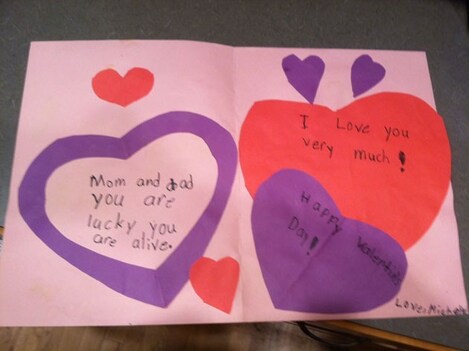 Mom and dad
you are
lucky you
are alive.
I Love you
very much!
Happy Valentin's
Day!
Love, Michelle